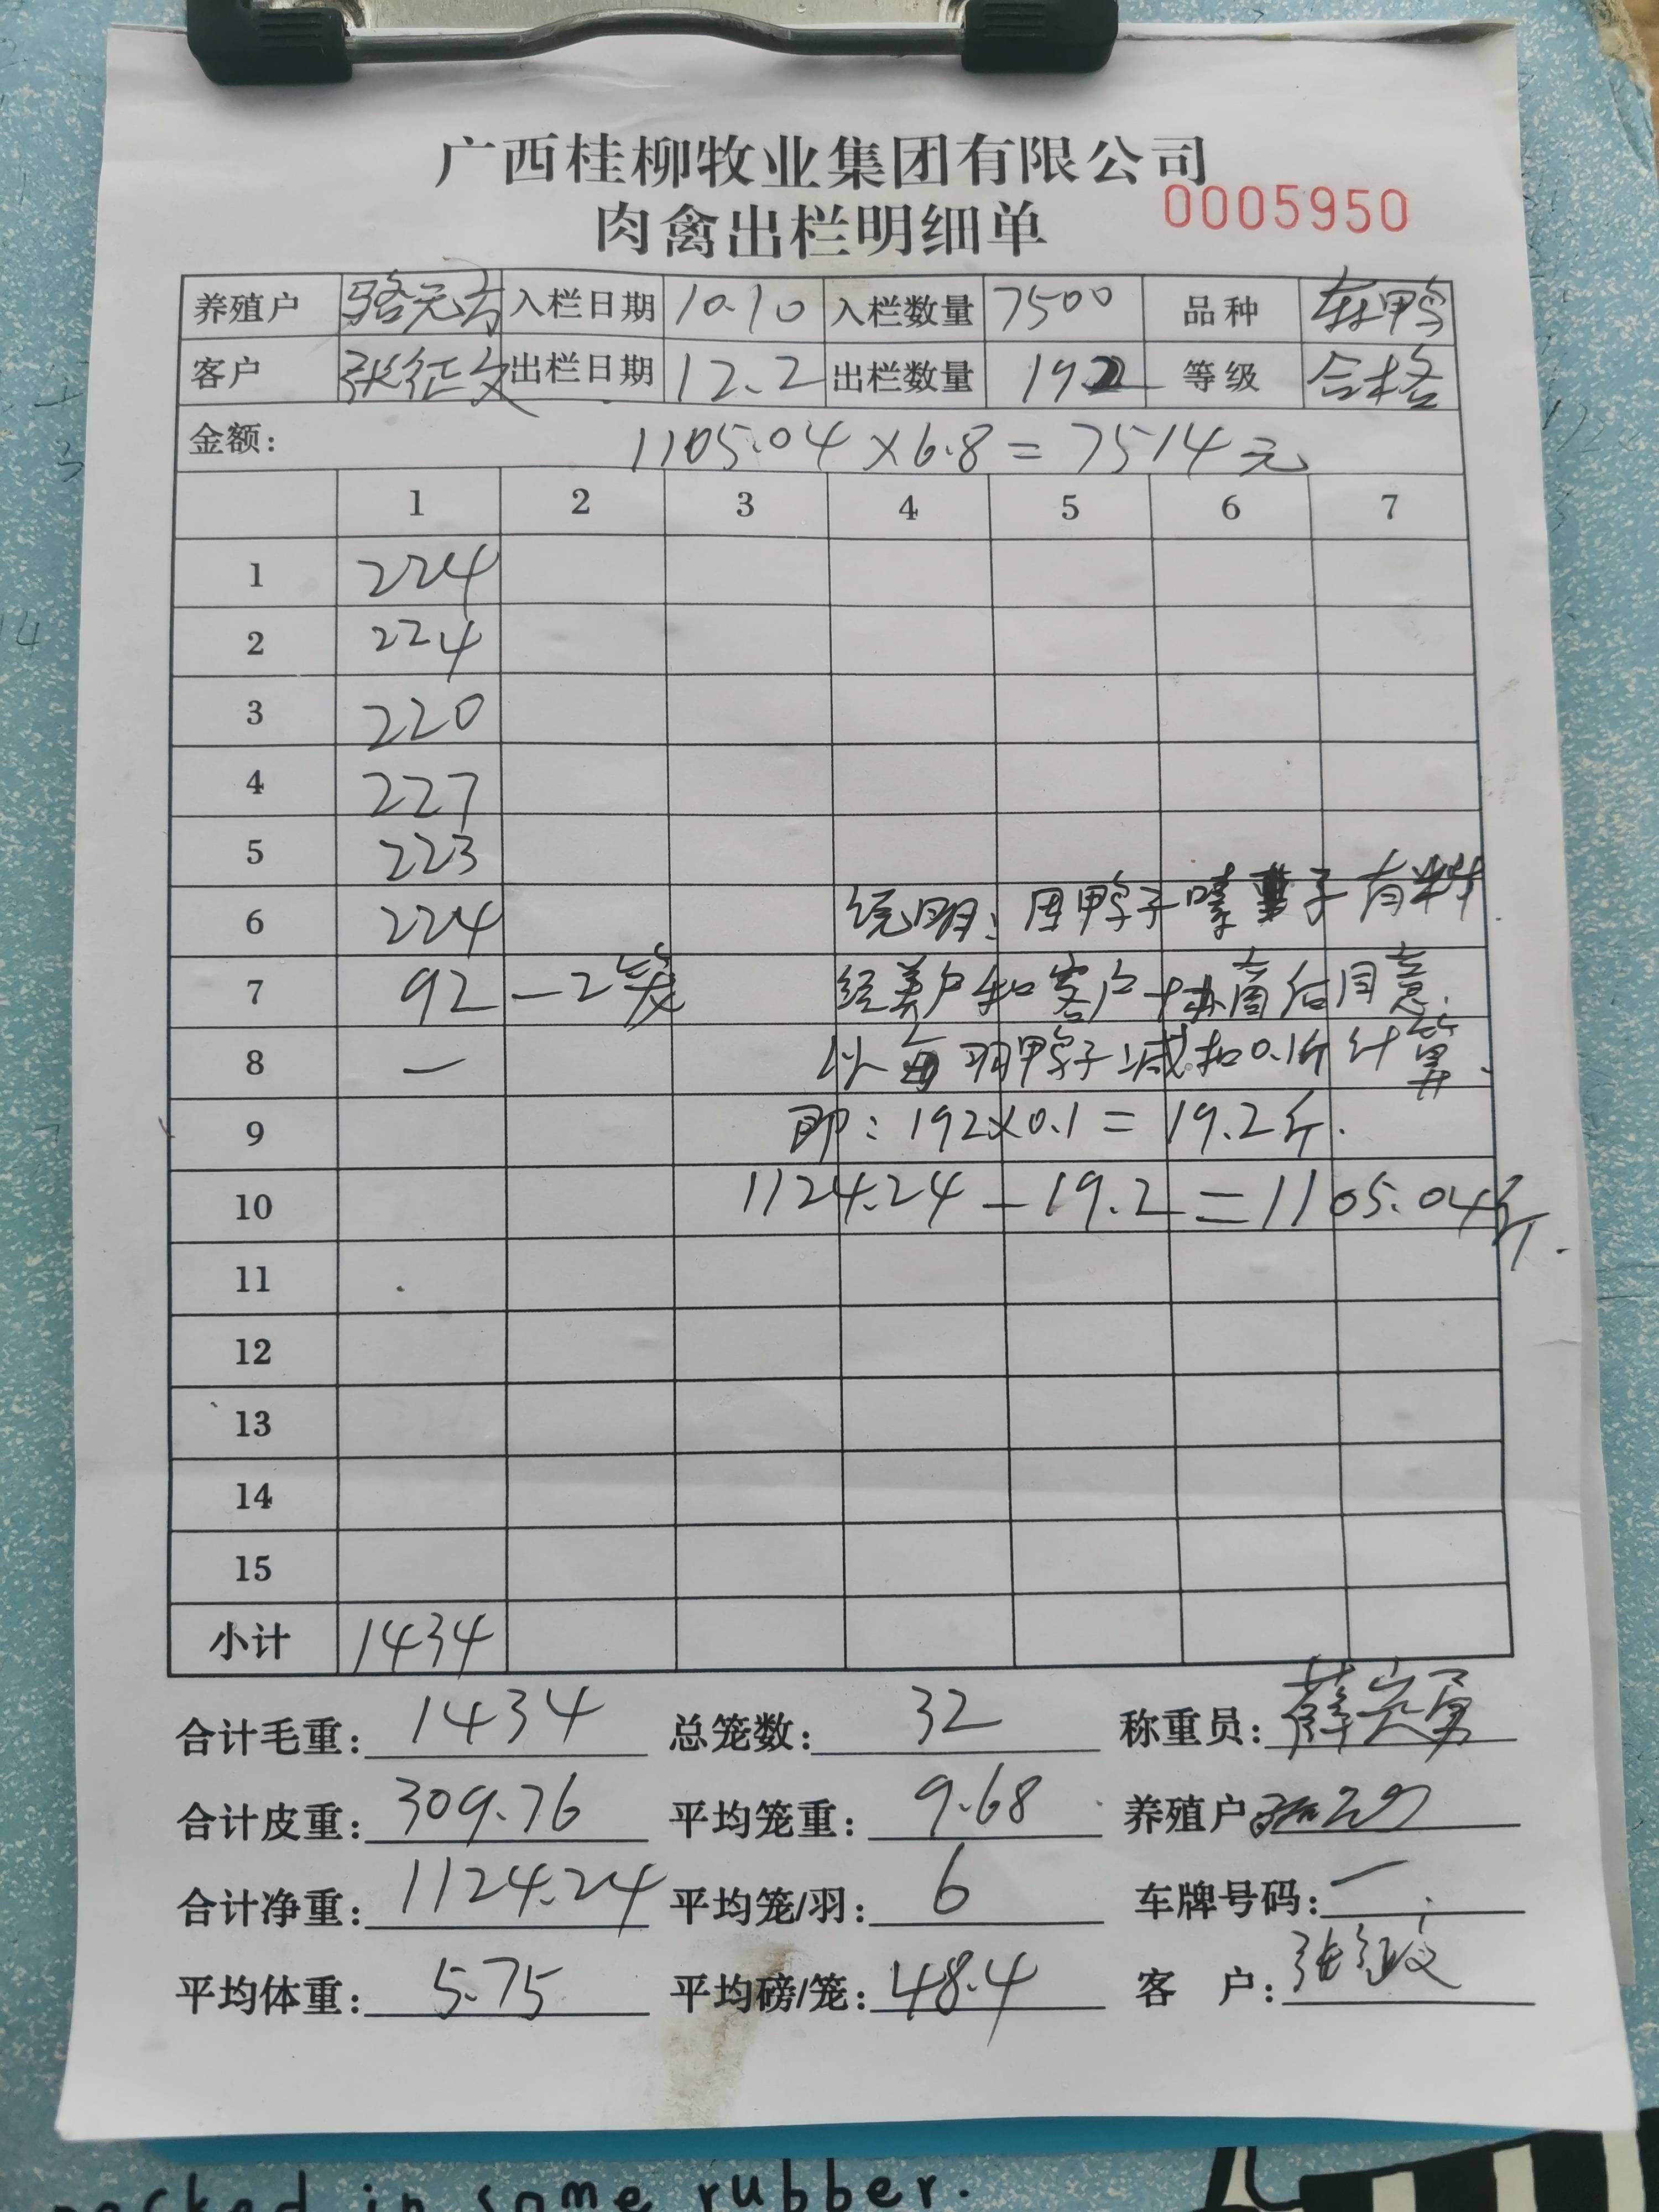 广西桂柳牧业集团有限公司
肉禽出栏明细单 0005950
养殖户 骆 入栏日期 10.10 入栏数量 7500 品种 鸭
客户 张征文 出栏日期 12.2 出栏数量 192 等级 合格
金额: 1105.04×6.8=7514元
1 2 3 4 5 6 7
1 224
2 224
3 220
4 227
5 223
6 224 说明: 因鸭子嗉子有料
7 92 —2笼 经养户和客户协商后同意.
8 — 以每羽鸭子减扣0.1斤计算.
9 即: 192×0.1=19.2斤.
10 1124.24-19.2=1105.04斤.
11
12
13
14
15
小计 1434
合计毛重: 1434 总笼数: 32 称重员: 薛
合计皮重: 309.76 平均笼重: 9.68 养殖户
合计净重: 1124.24 平均笼/羽: 6 车牌号码: —
平均体重: 5.75 平均磅/笼: 48.4 客 户: 张征文
packed in some rubber.